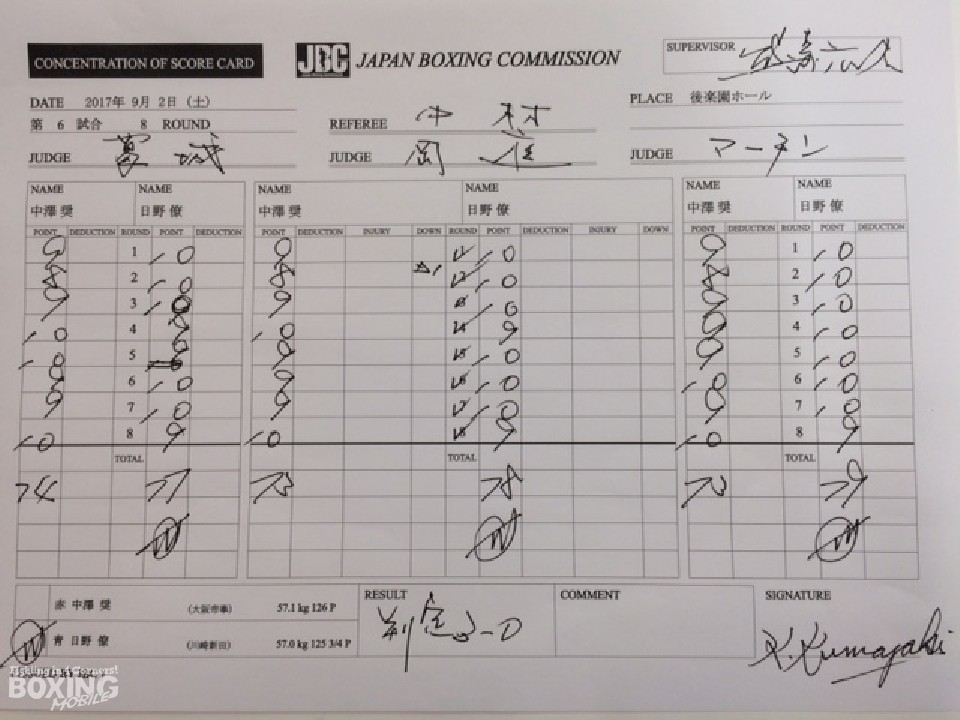 CONCENTRATION OF SCORE CARD
JBC JAPAN BOXING COMMISSION
SUPERVISOR
DATE 2017年 9月 2日 (土)
PLACE 後楽園ホール
第 6 試合 8 ROUND
REFEREE 中村
JUDGE JUDGE JUDGE マーチン
NAME NAME NAME NAME NAME NAME
中澤 奨 日野 僚 中澤 奨 日野 僚 中澤 奨 日野 僚
POINT DEDUCTION ROUND POINT DEDUCTION POINT DEDUCTION INJURY DOWN ROUND POINT DEDUCTION INJURY DOWN POINT DEDUCTION ROUND POINT DEDUCTION
9 1 10 9 1 10 9 1 10
8 2 10 8 2 10 8 2 10
9 3 10 9 3 10 9 3 10
10 4 9 10 4 9 9 4 10
10 5 9 9 5 10 9 5 10
9 6 10 9 6 10 10 6 10
9 7 10 9 7 10 9 7 10
10 8 9 10 8 9 10 8 9
TOTAL TOTAL TOTAL
74 77 73 78 73 79
W W W
赤 中澤 奨 (大阪帝拳) 57.1 kg 126 P
W 青 日野 僚 (川崎新田) 57.0 kg 125 3/4 P
RESULT
判定 3-0
COMMENT
SIGNATURE
K. Kumagaki
Fighting in 4 Corners!
BOXING
MOBILE